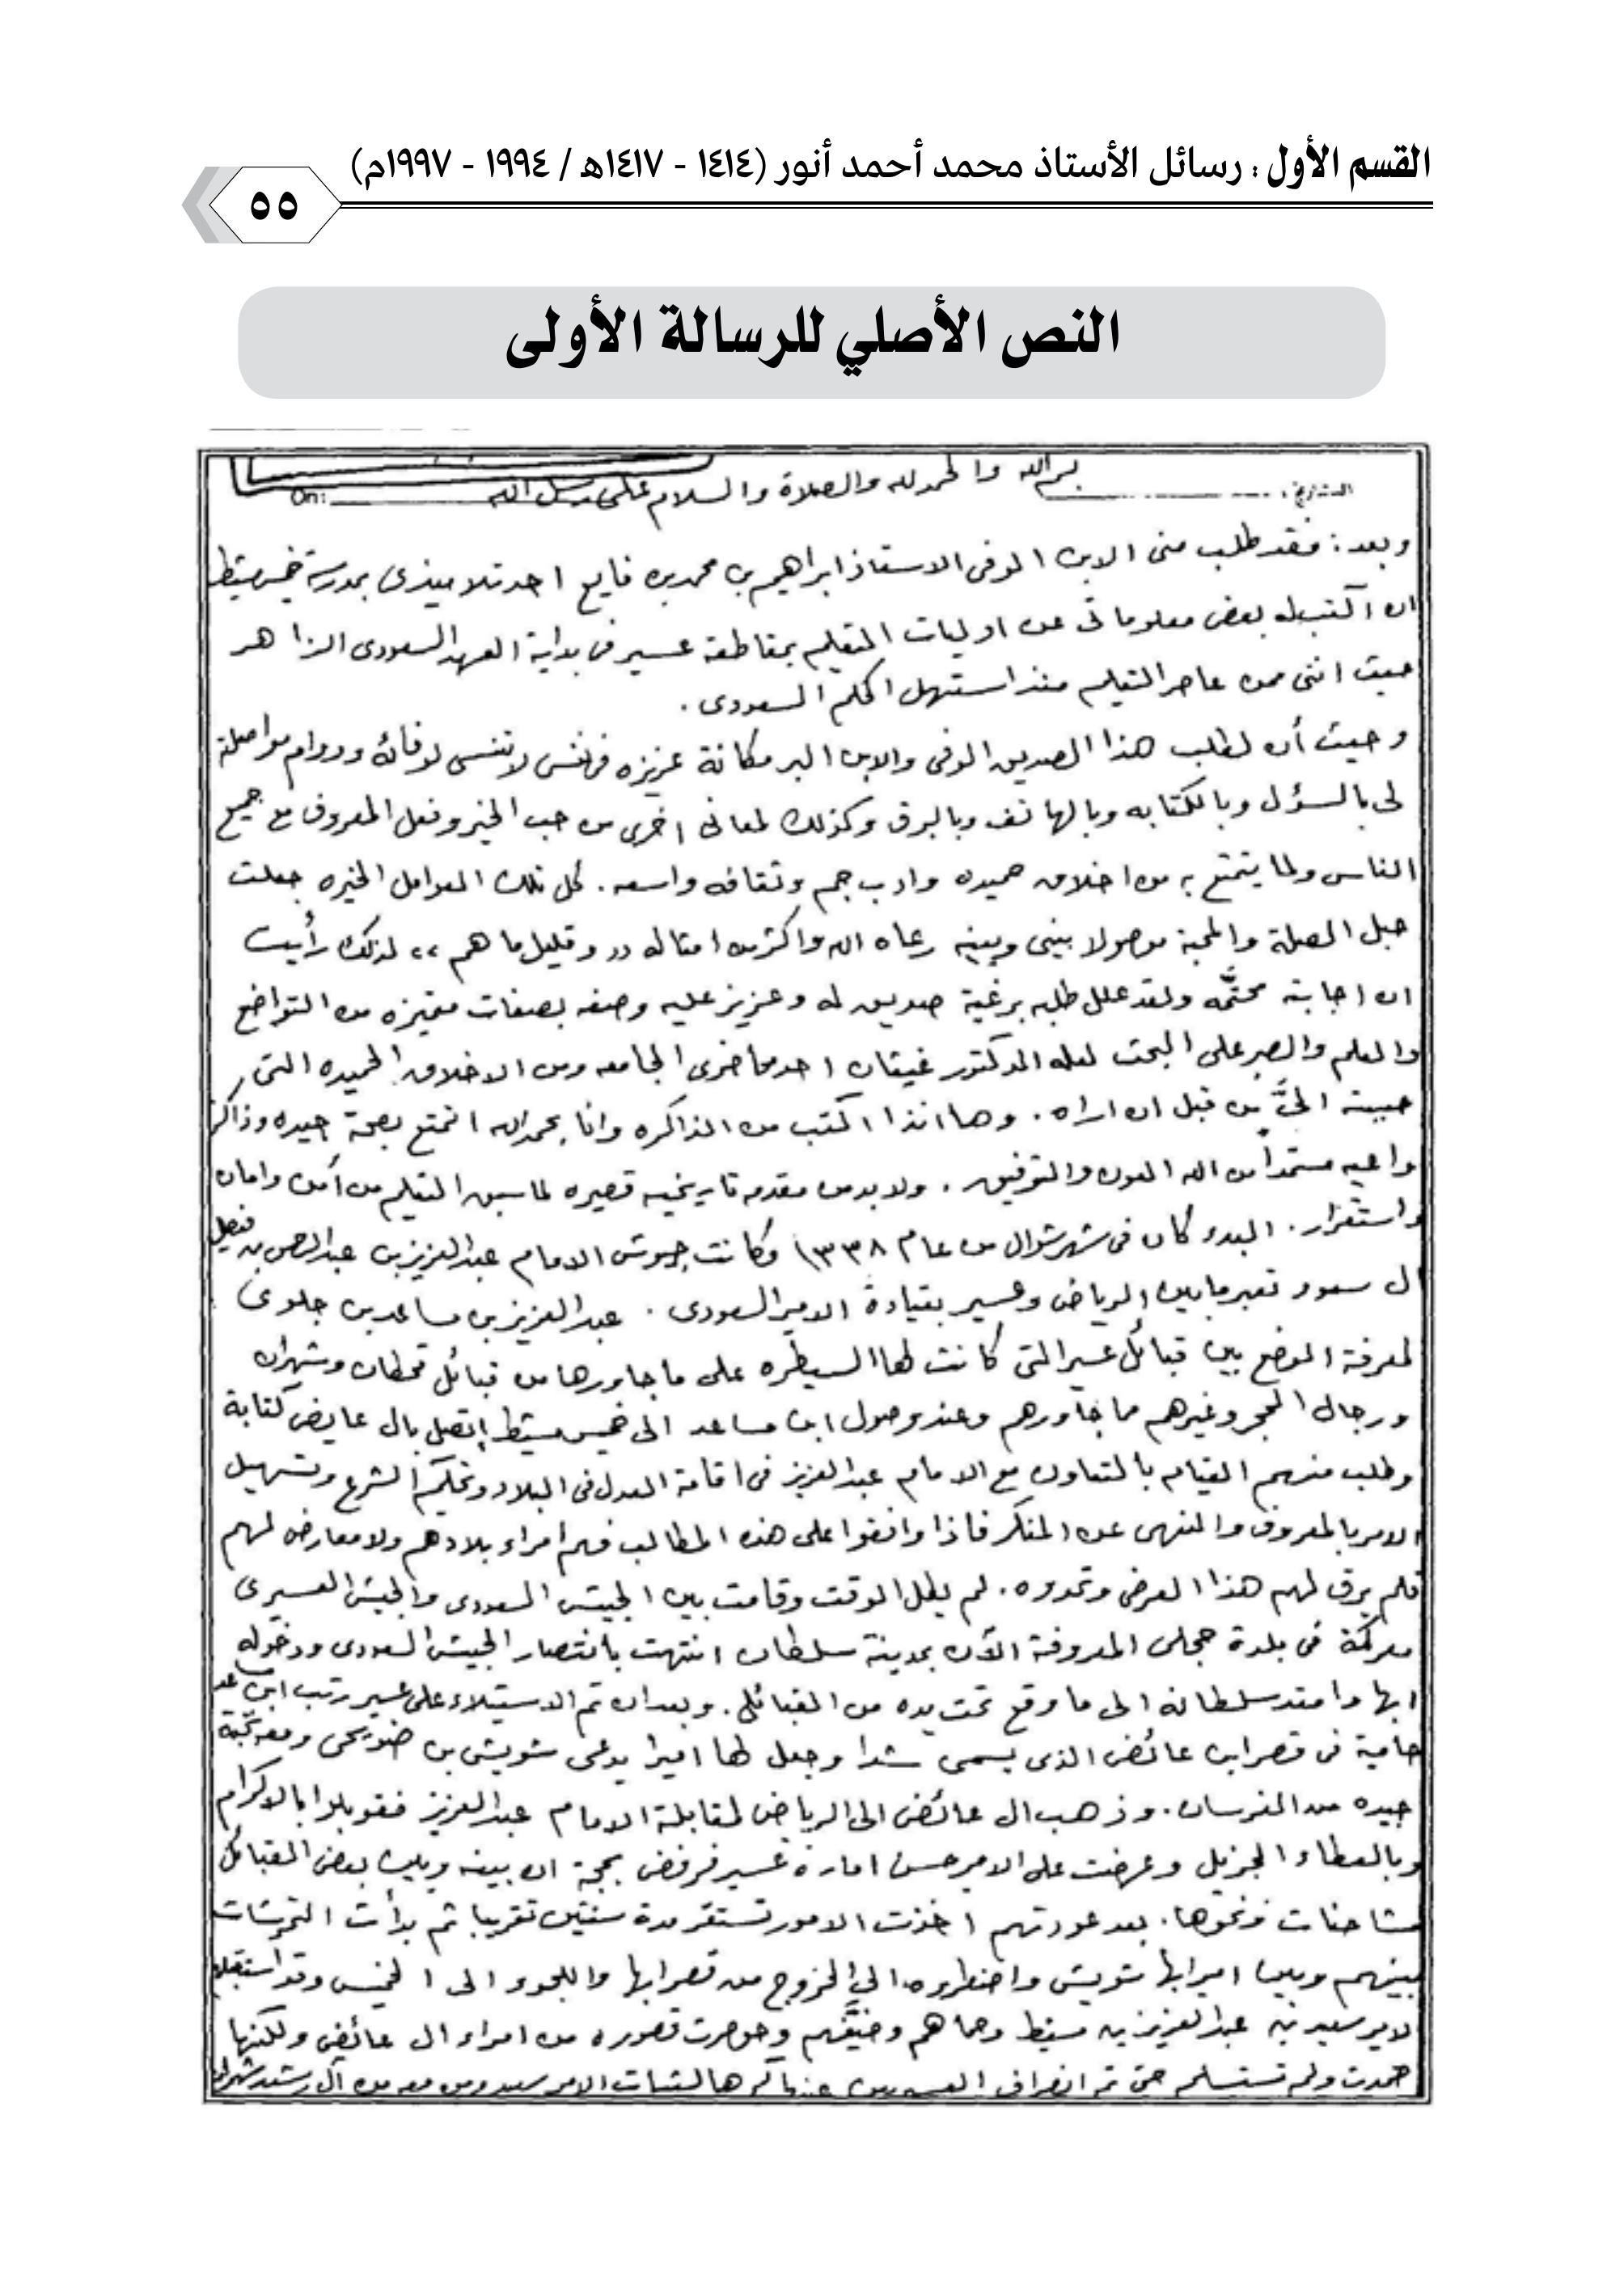 القسم الأول : رسائل الأستاذ محمد أحمد أنور (١٤١٤ - ١٤١٧هـ / ١٩٩٤ - ١٩٩٧م)
٥٥
النص الأصلي للرسالة الأولى
بسم الله والحمد لله والصلاة والسلام على رسول الله
التاريخ: On:
وبعد: فقد طلب منى الابن الوفى الاستاذ ابراهيم بن محمد بن فايع احد تلاميذى بمدرسة خميس مشيط
ان اكتب له بعض معلوماتى عن اوليات التعليم بمقاطعة عسير فى بداية العهد السعودى الزاهر
حيث اننى ممن عاصر التعليم منذ استهل الحكم السعودى .
وحيث أن لطلب هذا الصديق الوفى والابن البر مكانة عزيزه فى نفسى لا تنسى لوفائه ودوام مواصلة
لى بالسؤل وبالكتابه وبالهاتف وبالبرق وكذلك لمعانى اخرى من حب الخير وفعل المعروف مع جميع
الناس ولما يتمتع به من اخلاق حميده وادب جم وثقافه واسعه . كل تلك العوامل الخيره جعلت
حبل الصلة والمحبة موصولا بينى وبينه رعاه الله واكثر من امثاله (( وقليل ما هم )) لذلك رأيت
ان اجابته محتمَّه ولقد علل طلبه برغبة صديق له وعزيز عليه وصفه بصفات متميزه من التواضع
والعلم والصبر على البحث لعله الدكتور غيثان احد محاضرى الجامعه ومن الاخلاق الحميده التى
حببته الىَّ من قبل ان اراه . وها انذا اكتب من الذاكره وانا بحمد الله اتمتع بصحة جيده وذاكرة
واعيه مستمداً من الله العون والتوفيق . ولا بد من مقدمه تاريخيه قصيره لما سبق التعليم من أمن وامان
واستقرار . البدء كان فى شهر شوال من عام ١٣٣٨ وكانت جيوش الامام عبدالعزيز بن عبدالرحمن بن فيصل
ال سعود تعبر مابين الرياض وعسير بقيادة الامير السعودى . عبدالعزيز بن مساعد بن جلوى
لمعرفة الوضع بين قبائل عسير التى كانت لها السيطره على ما جاورها من قبائل قحطان وشهران
ورجال الحجر وغيرهم مما جاورهم وعند وصول ابن مساعد الى خميس مشيط إتصل بال عايض كتابة
وطلب منهم القيام بالتعاون مع الامام عبدالعزيز فى اقامة العدل فى البلاد وتحكيم الشرع وتسهيل
الامر بالمعروف والنهى عن المنكر فاذا وافقوا على هذه المطالب فهم امراء بلادهم ولا معارض لهم
فلم يرق لهم هذا العرض وتحدوه . لم يطل الوقت وقامت بين الجيش السعودى والجيش العسيرى
معركة فى بلدة حجلى المعروفة الآن بمدينة سلطان انتهت بانتصار الجيش السعودى ودخوله
ابها وامتد سلطانه الى ما وقع تحت يده من القبائل . وبعد ان تم الاستيلاء على عسير رتب ابن مساعد
حامية فى قصر ابن عائض الذى يسمى شدا وجعل لها اميرا يدعى شويش بن ضويحى ومعه كمية
جيده من الفرسان . وذهب ال عائض الى الرياض لمقابلة الامام عبدالعزيز فقوبلوا بالاكرام
وبالعطاء الجزيل وعرضت على الامير حسن امارة عسير فرفض بحجة ان بينه وبين بعض القبائل
مشاحنات ونحوها . بعد عودتهم اخذت الامور تستقر مدة سنتين تقريبا ثم بدأت التحرشات
بينهم وبين امير ابها شويش واضطروه الى الخروج من قصر ابها واللجوء الى الخميس وقد استقبله
الامير سعيد بن عبدالعزيز بن مشيط وحماهم وضيَّفهم وحوصرت قصوره من امراء ال عائض ولكنها
صمدت ولم تستسلم حتى تم انصراف العسيريين لثبات الامير سعيد ومن معه من آل رشيد شهران